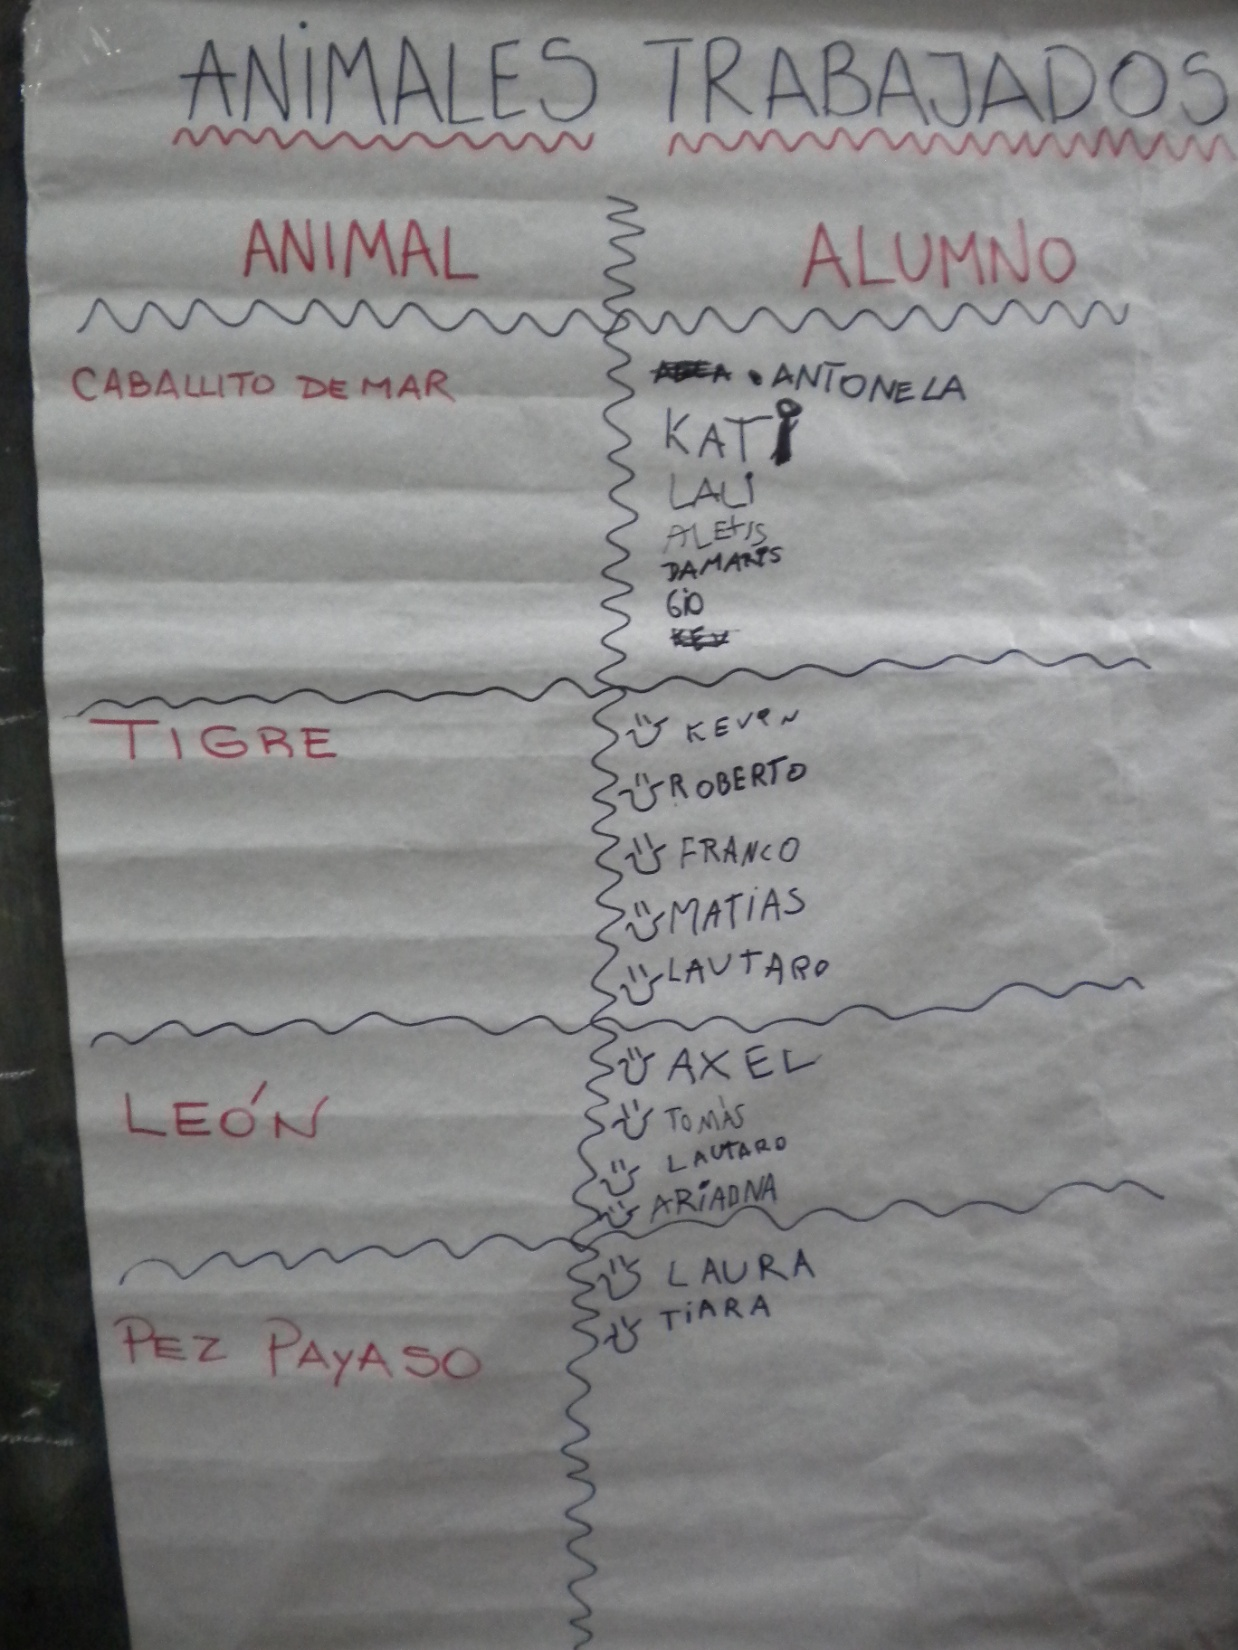 ANIMALES TRABAJADOS
ANIMAL ALUMNO
CABALLITO DE MAR
ANTONELA
KATI
LALI
ALEXIS
DAMARIS
GIO
TIGRE
KEVIN
ROBERTO
FRANCO
MATIAS
LAUTARO
LEÓN
AXEL
TOMÀS
LAUTARO
ARIADNA
PEZ PAYASO
LAURA
TIARA